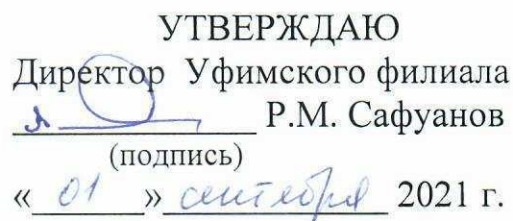 УТВЕРЖДАЮ
Директор Уфимского филиала
Р.М. Сафуанов
(подпись)
« 01 » сентября 2021 г.